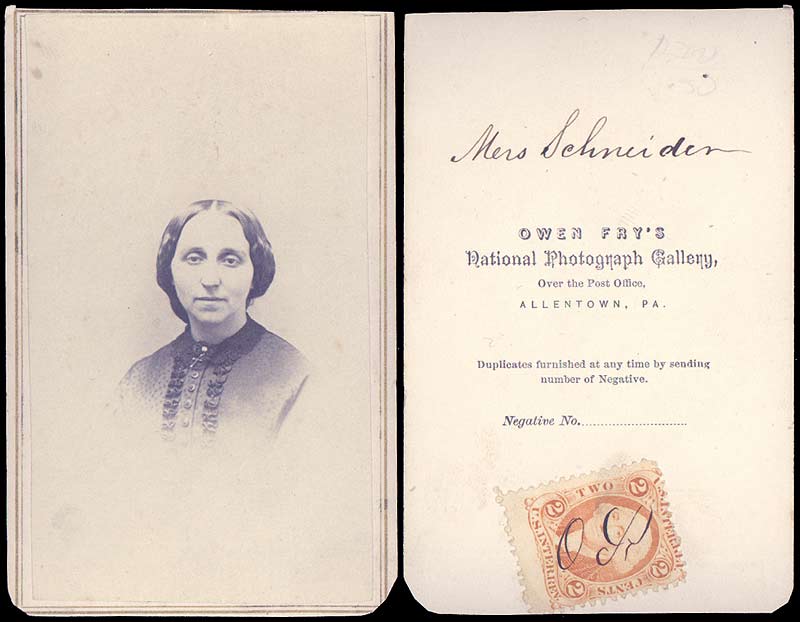 Mrs Schneider
OWEN FRY'S
National Photograph Gallery,
Over the Post Office,
ALLENTOWN, PA.
Duplicates furnished at any time by sending
number of Negative.
Negative No.
2 TWO 2
U.S. INTER. REV.
O F
2 CENTS 2